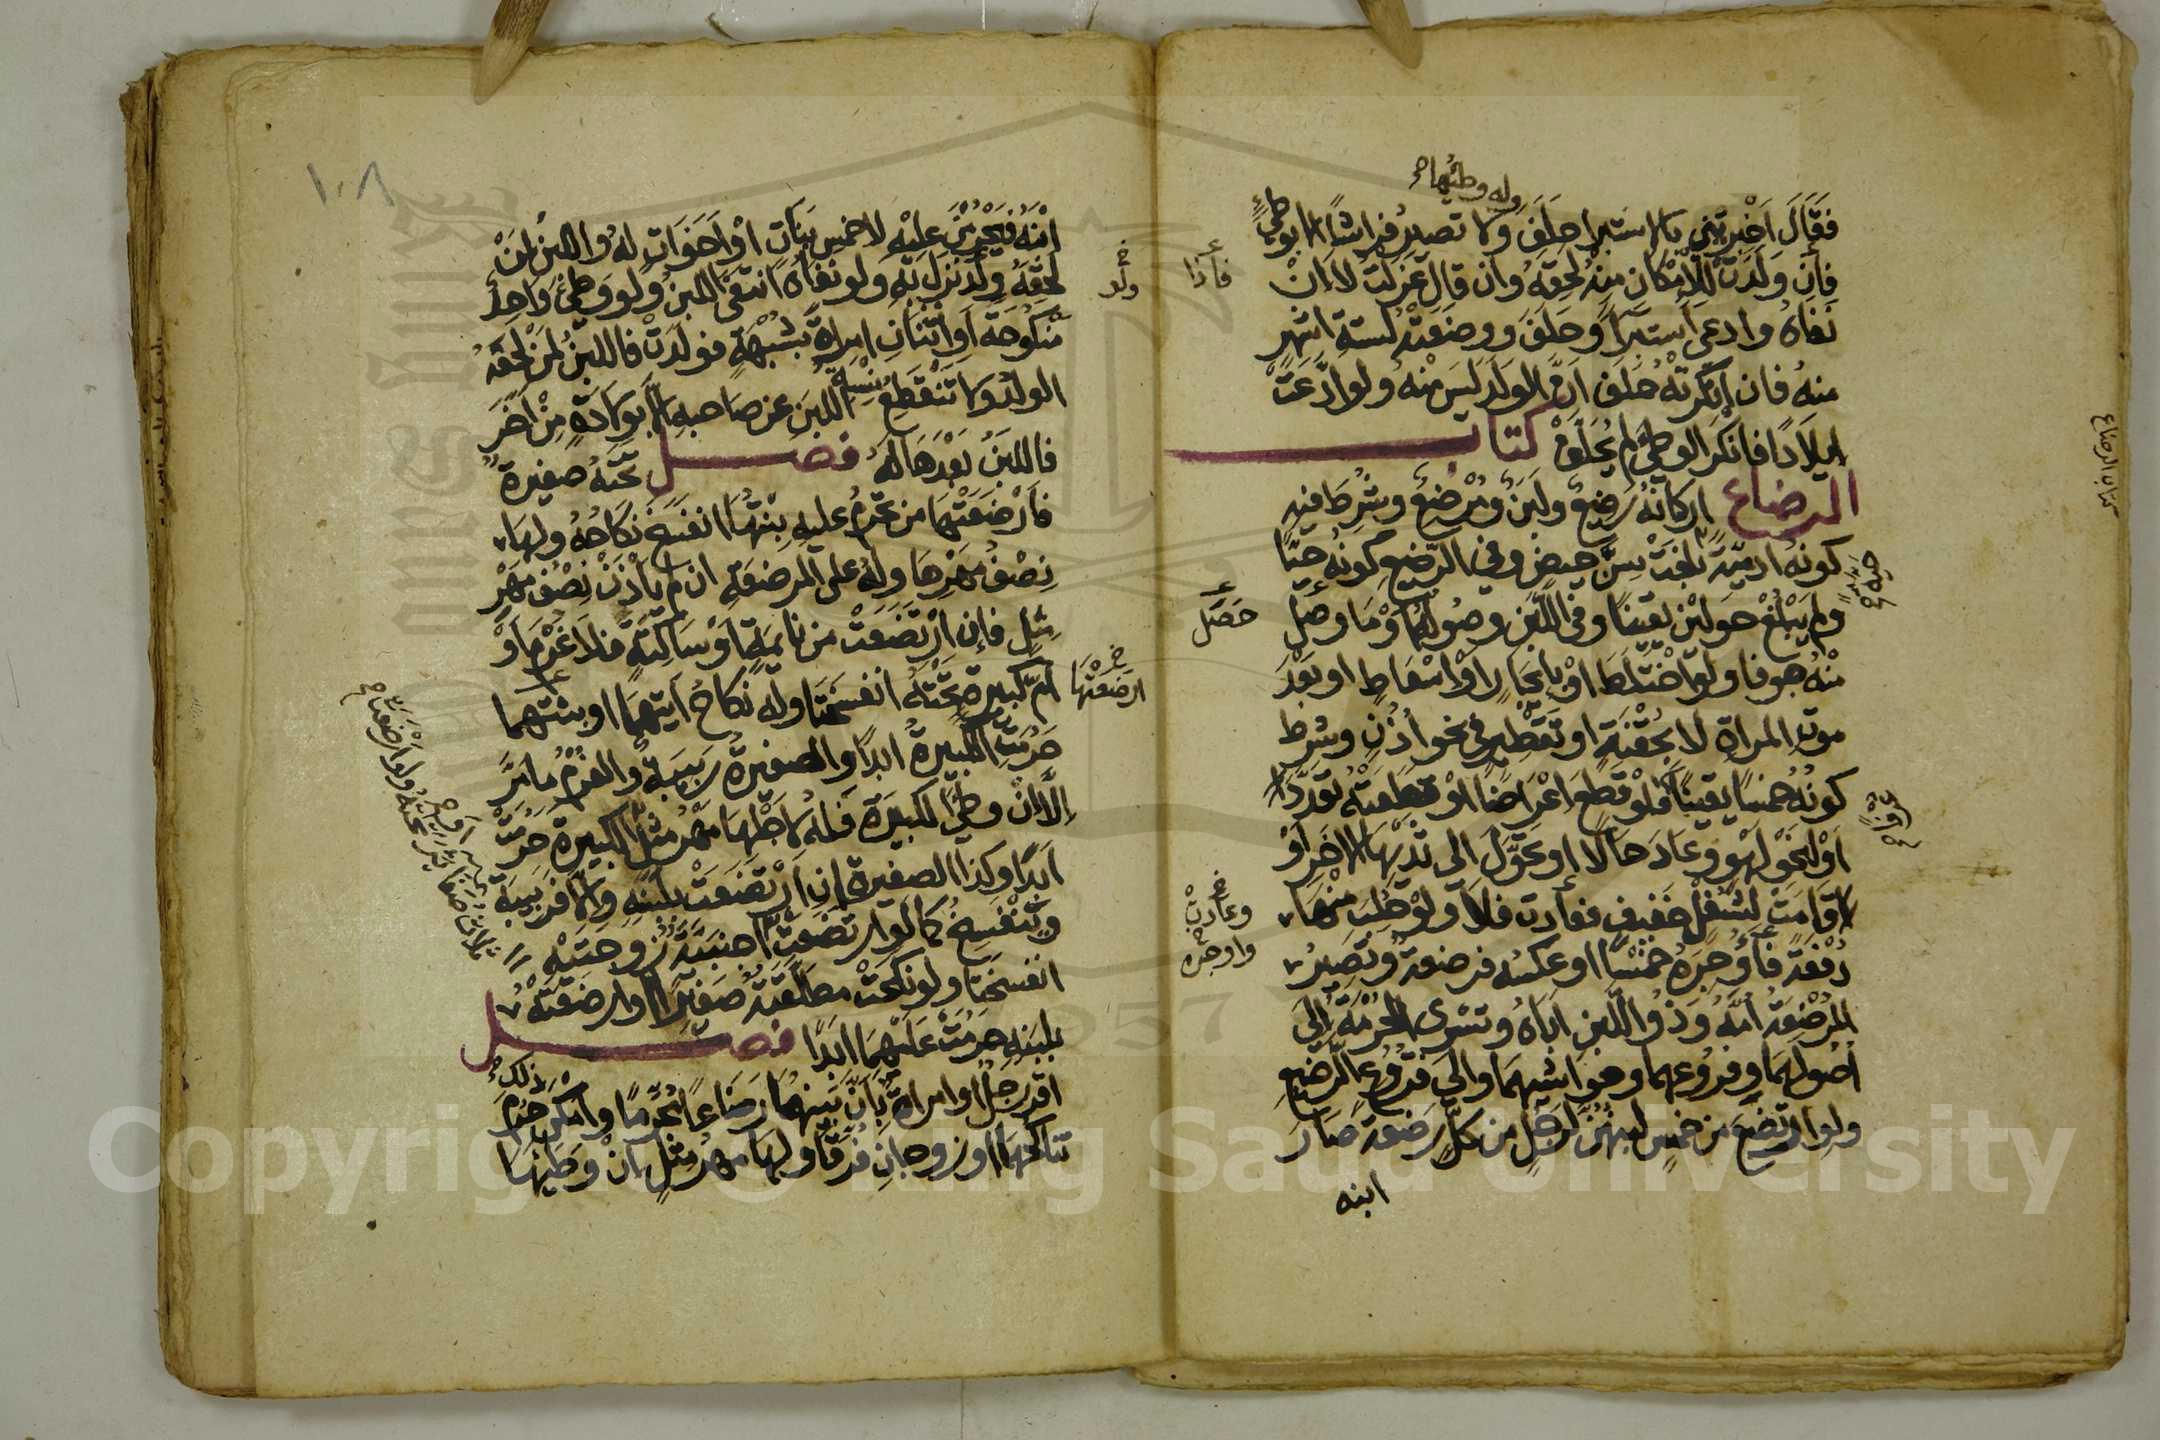 وله وطئها
فَقَالَ اَخْبَرَتْنِي بالاستبرا حَلَفَ ولا تصيرُ فراشًا الا بوطئٍ
فَإِن وَلَدَتْ لِلْاِمْكَانِ مِنْهُ لَحِقَهُ وان قال عَزلت لا اِنْ
نَفَاهُ وادعى استبرًا وحَلَفَ ووضَعَتْه لستة اشهر
منهُ فان انكَرَتْهُ حَلَفَ انَّ الولد لَيسَ مِنْهُ ولو ادَّعَتْ
اِيلَادًا فانكر الوطئَ لم يُحَلَّفْ كتاب
الرضاع اركانه رَضِيعٌ ولَبَنٌ ومُرْضِعٌ وشُرِطَ فيهِ
كونه ادميّةً بَلَغَتْ سِنَّ حَيضٍ وفي الرّضيعِ كونُه حَيًّا
ولم يَبْلُغْ حَولَيْنِ يَقينًا وفي اللَّبَنِ وصُولُه اَوْ مَا وصل
مِنْهُ جوفا ولو اخْتَلَطَ اوْ بإيجَارٍ اوْ اسْعَاطٍ او بَعْدَ
موتِ المراةِ لا بحُقْنَةٍ او تَقْطِيرٍ في نحوِ اذُنٍ وشرط
كونُهُ خمسًا يقينًا فَلَوْ قطَعَ اعْرَاضًا اوْ قطعَتْهُ تعَدَّدَا
اوْ لِنَحْوِ لَهْوٍ وعَادَ حَالًا او تحَوَّلَ الى ثَديِهَا الاخَرِ اَوْ
قَامَتْ لِشُغْلٍ خَفِيفٍ فعَادت فلَا ولَوْ حُلِبَ مِنْهَا
دُفْعَةً فَأُوجِرَهُ خَمْسًا او عكسُه فرضعة وتَصِيرُ
المُرضِعَةُ اُمَّهُ وَذُو اللَّبَنِ اَبَاهُ وتسْرِي الحُرْمَةُ اِلَى
اُصُولِهِمَا وفُرُوعِهِما وحواشِيهِمَا وَالَى فُرُوعِ الرَّضِيعِ
ولو ارتضَعَ مِن خمسٍ لبنُهُنَّ لرَجُلٍ من كلٍّ رَضعة صَارَ
ابنه
فَاِذا
حَصَل
وعادَتْ
واوجره
كتاب الرضاع
١٠٨
ابْنَهُ فَيَحْرُمْنَ عَلَيْهِ لا خمسِ بَنَاتٍ اَوْ اَخَوَاتٍ لهُ واللَّبَنُ لِمَنْ
لَحِقَهُ وَلَدٌ نَزَلَ بِهِ ولو نَفَاهُ انتَفَى اللبنُ ولَو وَطِئَ وَاحِدٌ
مَنْكُوحَةً اَو اثْنَانِ امراةً بِشُبْهَةٍ فولَدَتْ فاللبنُ لِمَنْ لَحِقَهُ
الولدُ ولا تَنْقَطِعُ نِسْبة اللبَنِ عن صَاحبِهِ الا بوِلادَةٍ مِنْ اٰخَرَ
فاللبَنُ بَعْدَهَا لَهُ فصل تحْتَهُ صَغِيرَةٌ
فَاَرْضَعَتْهَا مَن تحْرُمُ عليهِ بِنْتُهَا انفسخَ نِكَاحُهُ ولها
نِصْفُ مَهْرِهَا ولهُ على المرضعَةِ ان لم يَأْذَنْ نِصْفُ مَهْرِ
مِثلٍ فاِن ارْتَضَعَتْ من نائِمَةٍ اوْ سَاكِتَةٍ فلَا غُرْمَ اَوْ
اُمُّ كَبِيرَةٍ تحْتَهُ انفسَخَتَا ولهُ نكَاحُ اَيَّتِهِمَا او بنتهما
حَرُمَتِ الكَبيرةُ ابَدًا والصغيرَةُ رَبيبةٌ والغرمُ ما مَرَّ
اِلَّا اِنْ وَطِئَ الكبيرَةَ فَلَهُ لاجْلِهَا مَهْرُ مِثْلِ الكبيرة حَرُمَتْ
اَبَدًا وكذا الصغيرة اِن ارْتَضَعَتْ بِلَبَنِهِ والَّا فَرَبيبَةٌ
وتَنْفَسِخُ كما لو ارتضَعَتْ اجنبيَّةٌ زَوجَتَيْهِ
انفسخَتَا ولو نكحَتْ مُطَلَّقَتُهُ صَغِيرًا وارضعَتْهُ
بلبَنِهِ حَرُمَتْ عَلَيْهِمَا ابَدًا فصل
اقرَّ رجُلٌ او امراةٌ بِاَنَّ بَيْنَهُمَا رَضَاعًا مُحَرِّمًا وامكن حَرُمَ
ذلك
تناكحُهما او زوجانِ فُرِّقَا ولهَا مهرُ مِثْلٍ اِنْ وَطِئَها
ولو
ارضَعَتْها